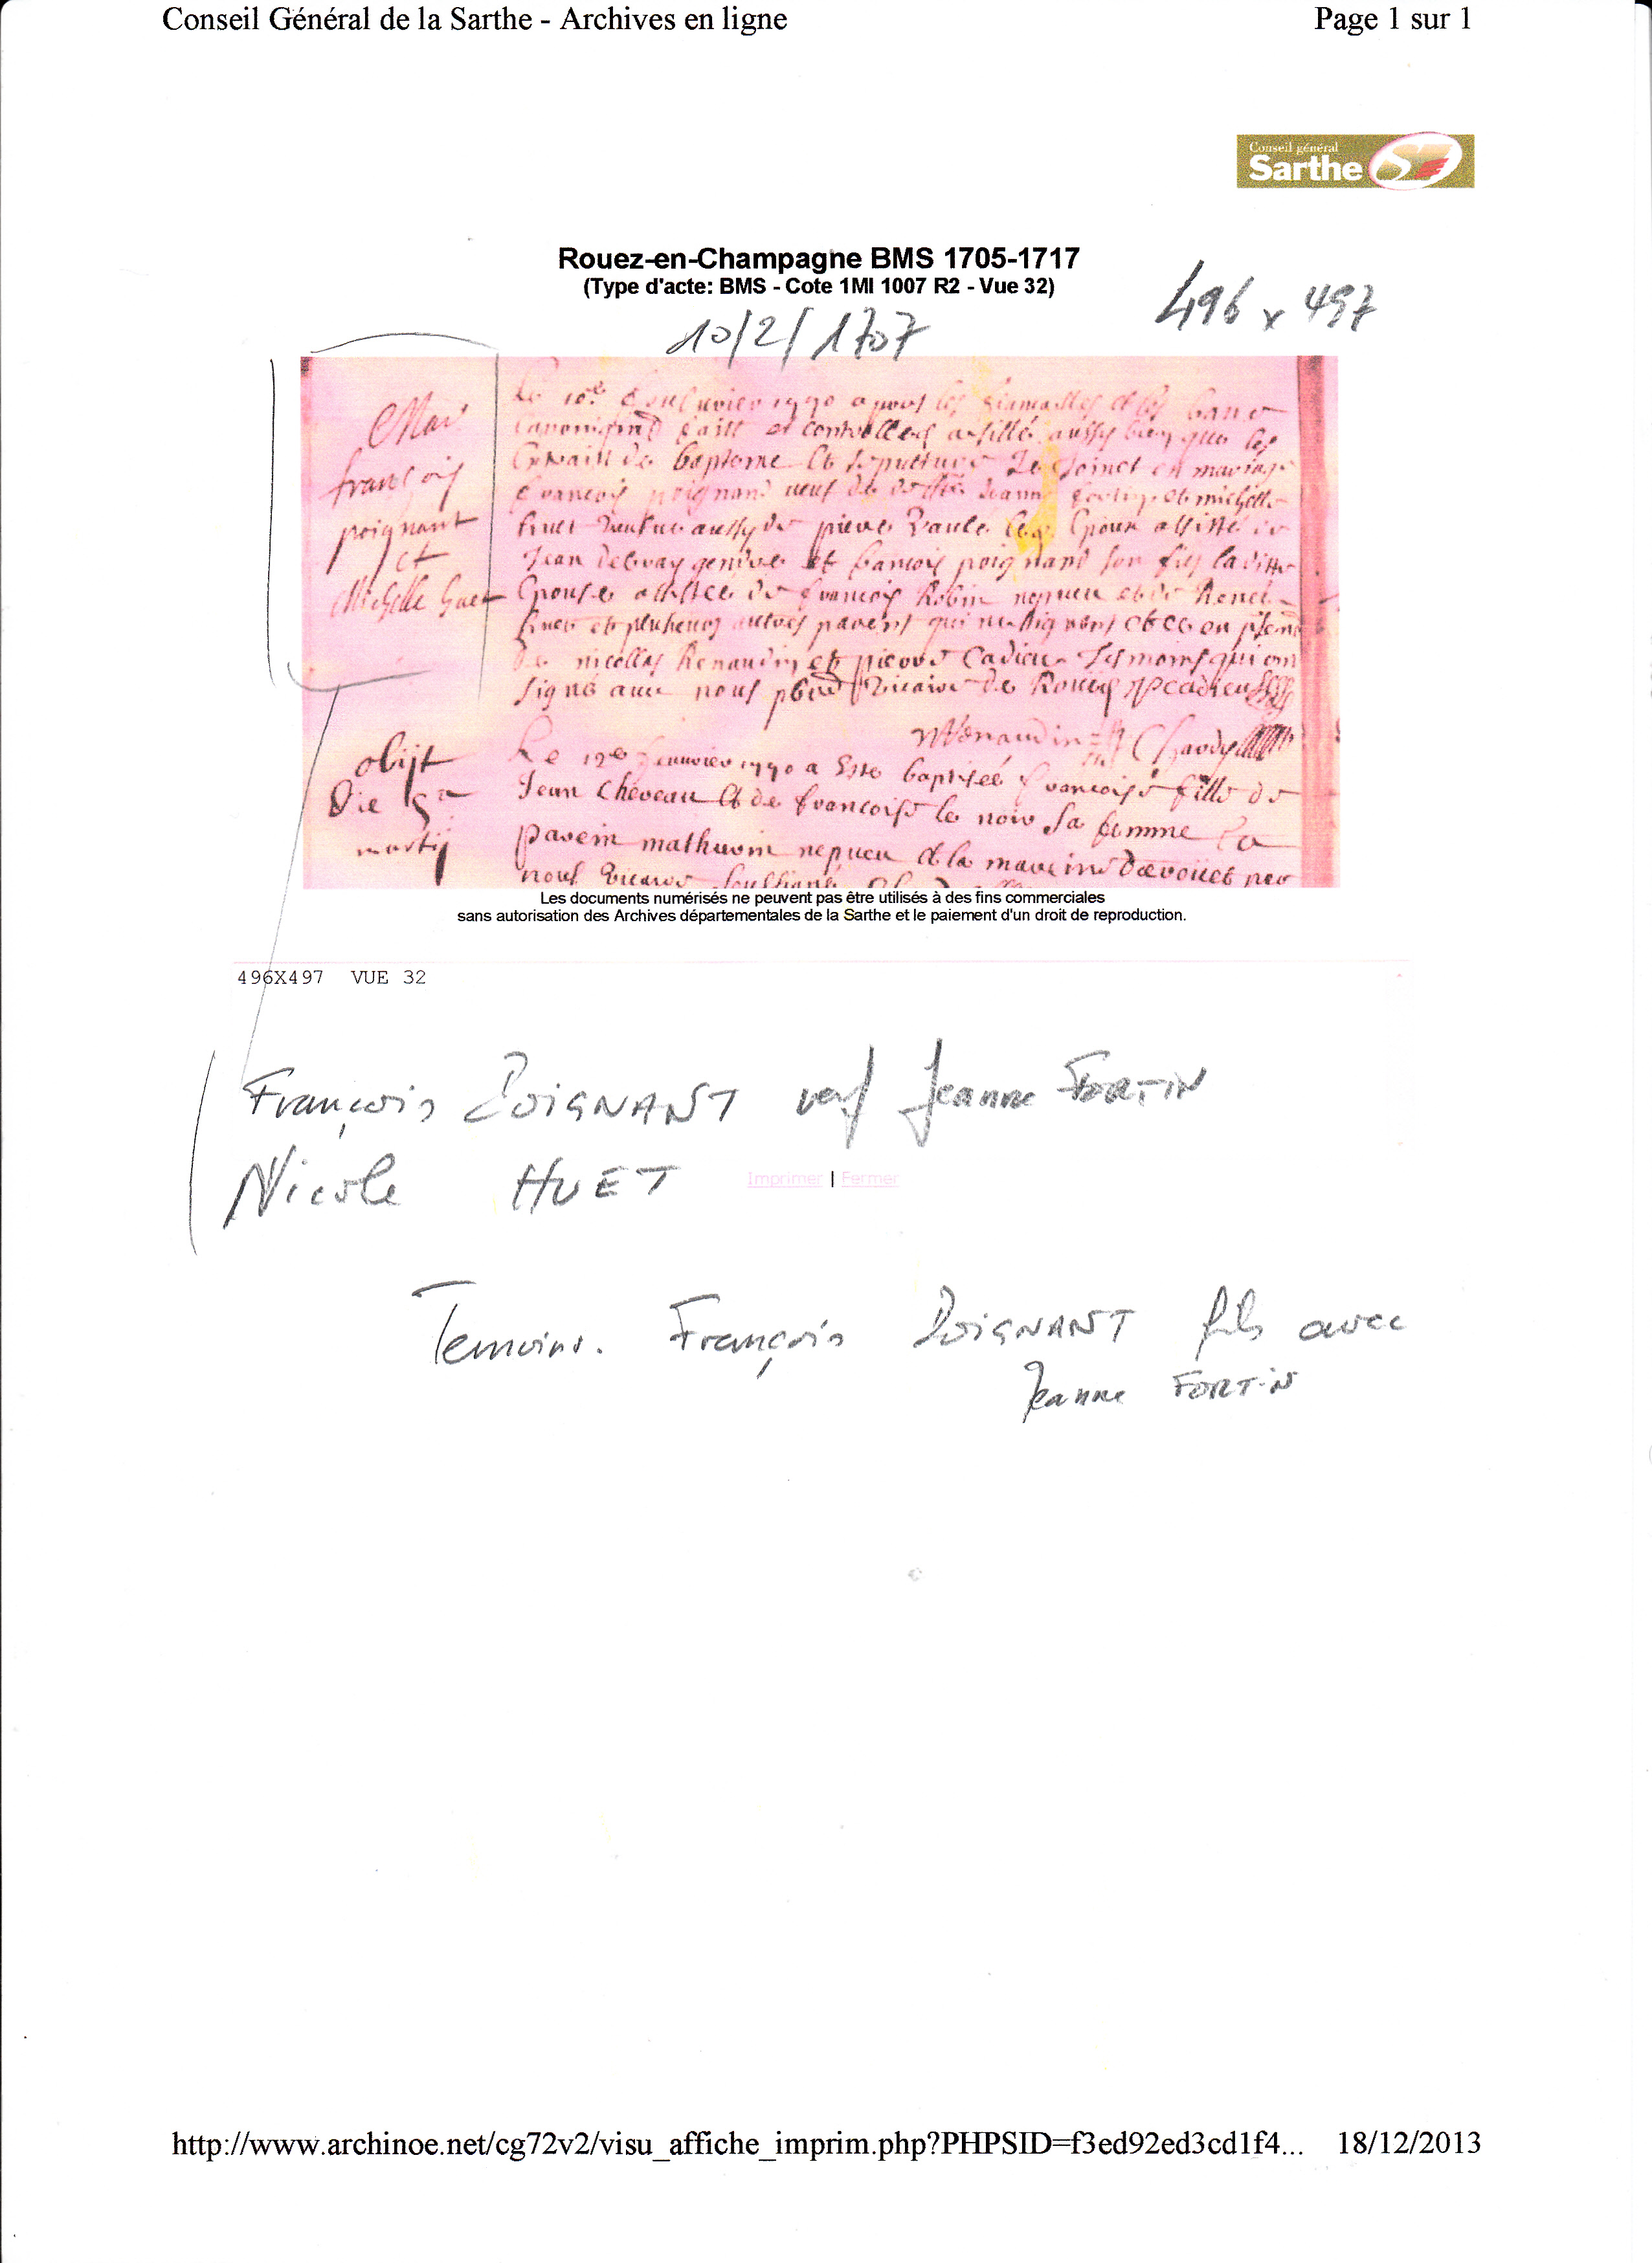 Conseil Général de la Sarthe - Archives en ligne
Page 1 sur 1
Conseil général
Sarthe
Rouez-en-Champagne BMS 1705-1717
(Type d'acte: BMS - Cote 1MI 1007 R2 - Vue 32)
496 x 497
10/2/1707
Mar
françois
poignant
et
Michelle huet
Le 10e
et controllees aussy bien que les
de baptesme et sepulture Je Joinct en mariage
francois poignand veuf de Jeanne et michelle
huet aussy de pierre Epoux assisté de
Jean gendre et francois poignand son fils laditte
Epouse assistée de francois Robin nepueu et de René
huet et plusieurs autres parent qui ne signent
de nicollas Renaudin et pierre Cadieu tesmoins qui ont
signé avec nous vicaire de Rouez pcadieu
NRenaudin
obijt
Die 5a
martij
Le 12e a Este baptisée francoise fille de
Jean Cheveau et de francoise le noir sa femme le
parein mathurin nepueu et la mareine
nous vicaire soussigné
Les documents numérisés ne peuvent pas être utilisés à des fins commerciales
sans autorisation des Archives départementales de la Sarthe et le paiement d'un droit de reproduction.
496X497 VUE 32
François POIGNANT veuf Jeanne FORTIN
Nicole HUET
Imprimer | Fermer
Temoins. François POIGNANT fils avec
Jeanne FORTIN
http://www.archinoe.net/cg72v2/visu_affiche_imprim.php?PHPSID=f3ed92ed3cd1f4... 18/12/2013